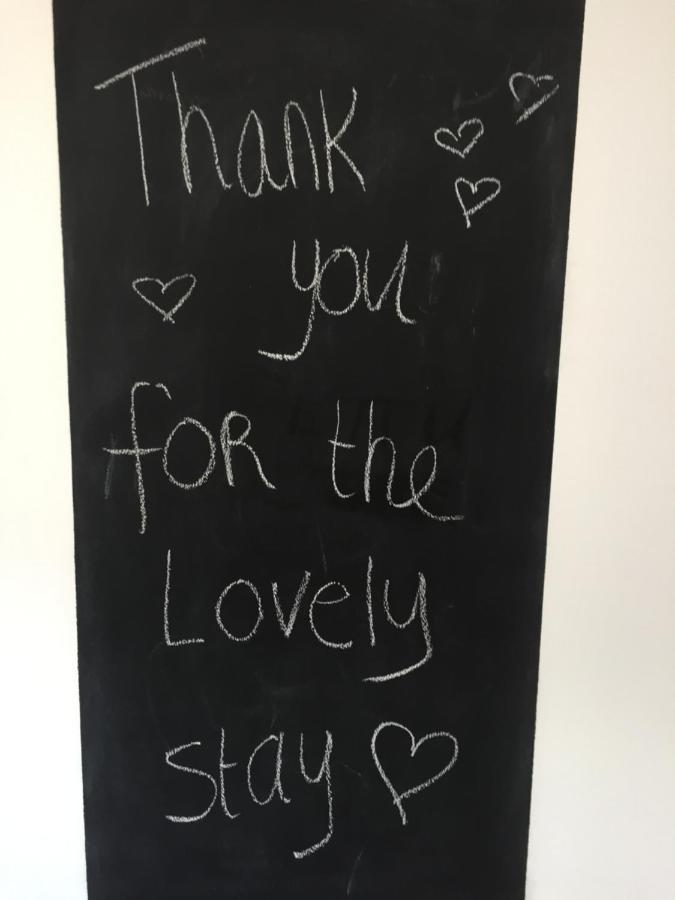 Thank
you
for the
Lovely
stay